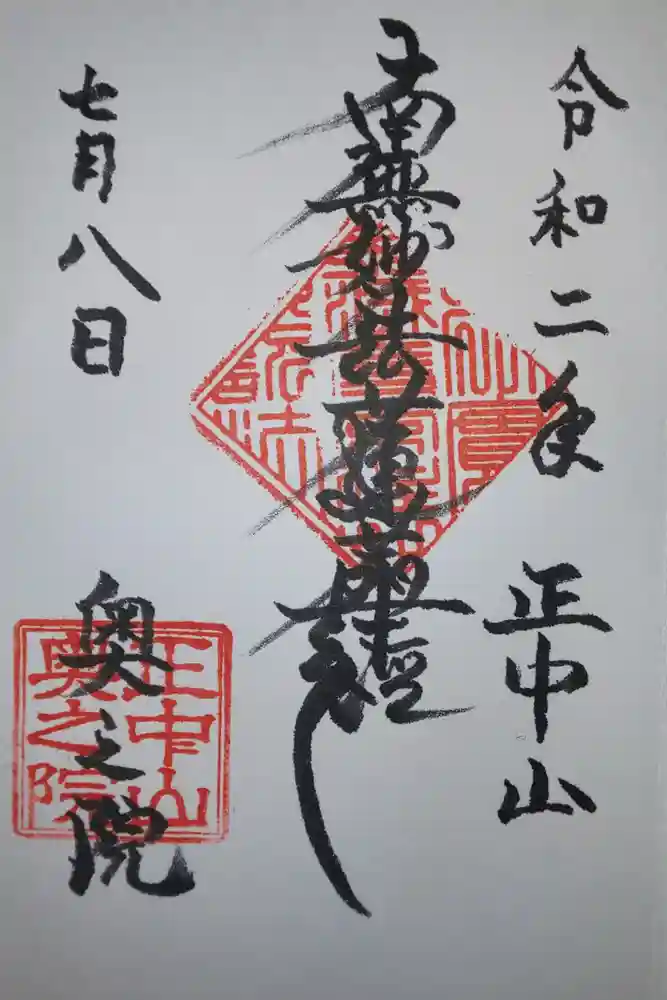 令和二年 正中山
南無妙法蓮華経
七月八日
奥之院
正中山
奥之院